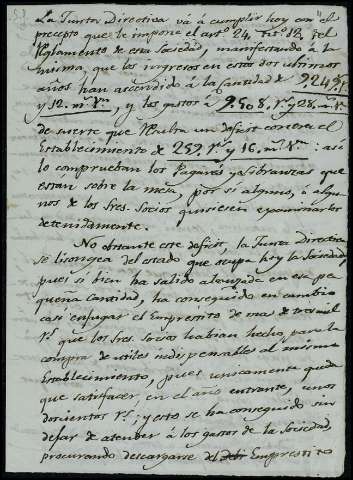 La Junta Directiva vá á cumplir hoy con el
precepto que le impone el artº 24, nº 12 del
Reglamento de esta Sociedad, manifestando á la
misma, que los ingresos en estos dos ultimos
años, han ascendido á la cantidad de 9.249 rˢ
y 12 mˢ vⁿ, y los gastos á 9.508 rˢ y 28 mˢ vⁿ
de suerte que resulta un deficit contra el
Establecimiento de 259 rˢ y 16 mˢ vⁿ: asi
lo comprueban los Pagarés y Libranzas que
estan sobre la mesa, por si alguno, ó algu-
nos de los Sres. Socios quisiesen examinarlos
detenidamente.
No obstante este deficit, la Junta Directiva
se lisongea del estado que ocupa hoy la Sociedad,
pues si bien ha salido alcanzada en esa pe-
queña cantidad, ha conseguido en cambio
casi enjugar el Emprestito de mas de tres mil
rˢ que los Sres. Socios habian hecho para la
compra de utiles indispensables al mismo
Establecimiento, pues unicamente queda
que satisfacer, en el año entrante, unos
doscientos rˢ; y esto se ha conseguido sin
dejar de atender á los gastos de la Sociedad,
procurando descargarse del Emprestito